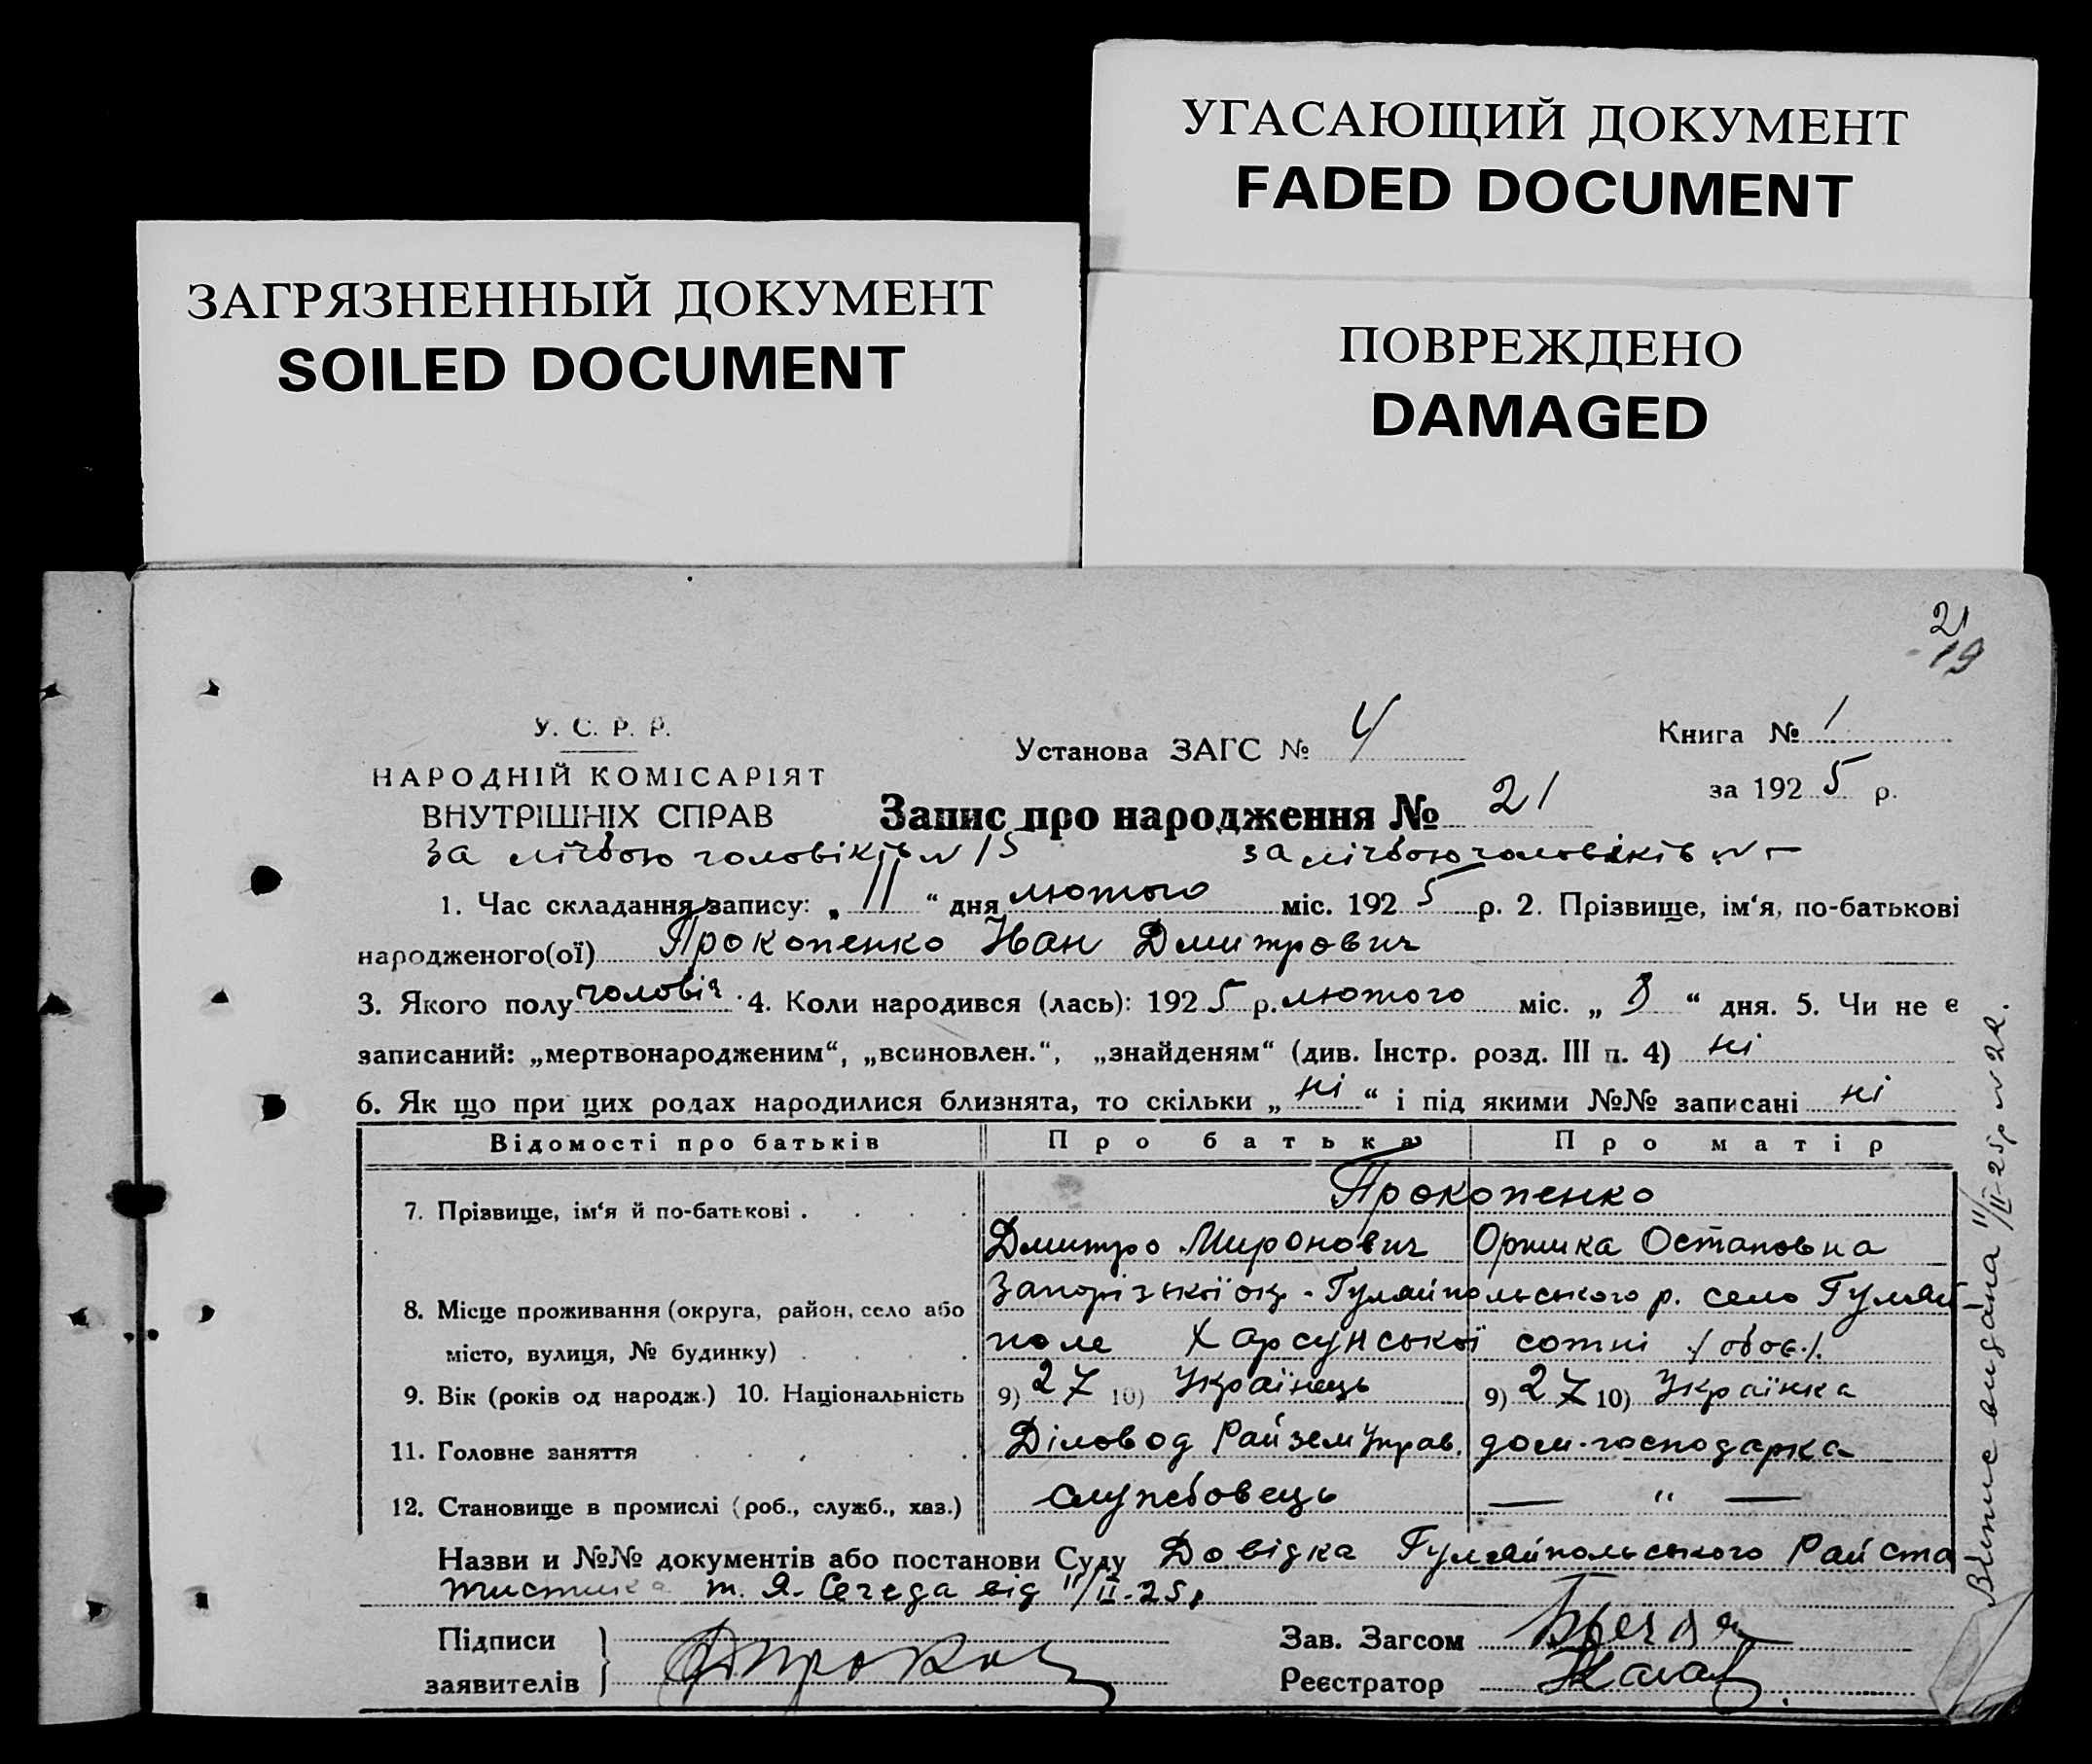 УГАСАЮЩИЙ ДОКУМЕНТ
FADED DOCUMENT
ЗАГРЯЗНЕННЫЙ ДОКУМЕНТ
SOILED DOCUMENT
ПОВРЕЖДЕНО
DAMAGED
21
19
У. С. Р. Р.
НАРОДНІЙ КОМІСАРІЯТ
ВНУТРІШНІХ СПРАВ
Установа ЗАГС № 4
Книга № 1
за 1925 р.
Запис про народження № 21
за лічбою чоловіків № 15 за лічбою чоловіків № –
1. Час складання запису: „ 11 “ дня лютого міс. 1925 р. 2. Прізвище, ім‘я, по-батькові
народженого(ої) Прокопенко Іван Дмитрович
3. Якого полу чоловіч. 4. Коли народився (лась): 1925 р. лютого міс. „ 8 “ дня. 5. Чи не є
записаний: „мертвонародженим“, „всиновлен.“, „знайденям“ (див. Інстр. розд. III п. 4) ні
6. Як що при цих родах народилися близнята, то скільки „ ні “ і під якими №№ записані ні
Відомості про батьків Про батька Про матір
7. Прізвище, ім‘я й по-батькові . Прокопенко
Дмитро Миронович Оришка Остаповна
8. Місце проживання (округа, район, село або Запорізької окр. Гуляйпольського р. село Гуляй
місто, вулиця, № будинку) поле Харсунської сотні /обоє/.
9. Вік (років од народж.) 10. Національність 9) 27 10) Українець 9) 27 10) Українка
11. Головне заняття Діловод Райземуправ. дом. господарка
12. Становище в промислі (роб., служб., хаз.) службовець — “ —
Назви и №№ документів або постанови Суду Довідка Гуляйпольського Райста
тистика т. Я. Сегеда від 11/II-25р
Підписи
заявителів
Зав. Загсом
Реєстратор
Випис видана 11/II-25р №